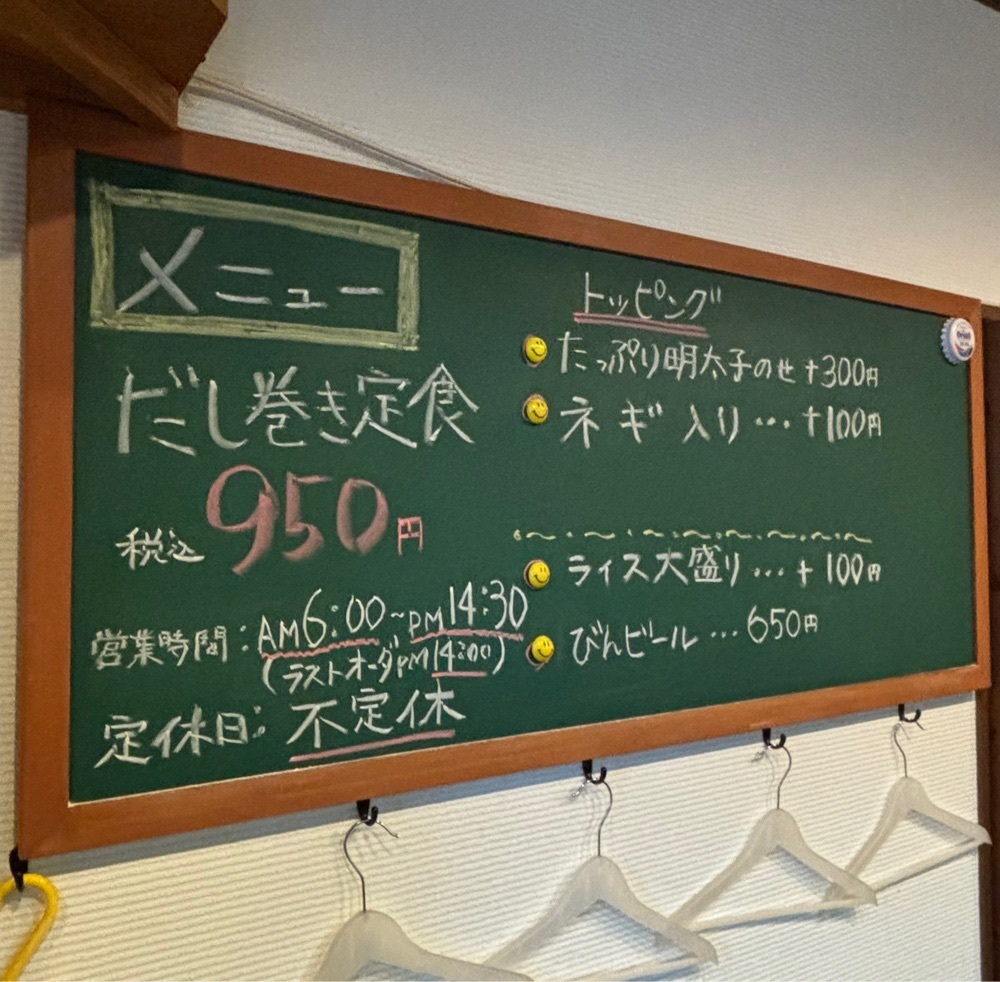 メニュー
だし巻き定食
税込 950円
営業時間:AM6:00~PM14:30
(ラストオーダPM14:00)
定休日:不定休
トッピング
たっぷり明太子のせ +300円
ネギ入り…+100円
ライス大盛り…+100円
びんビール…650円